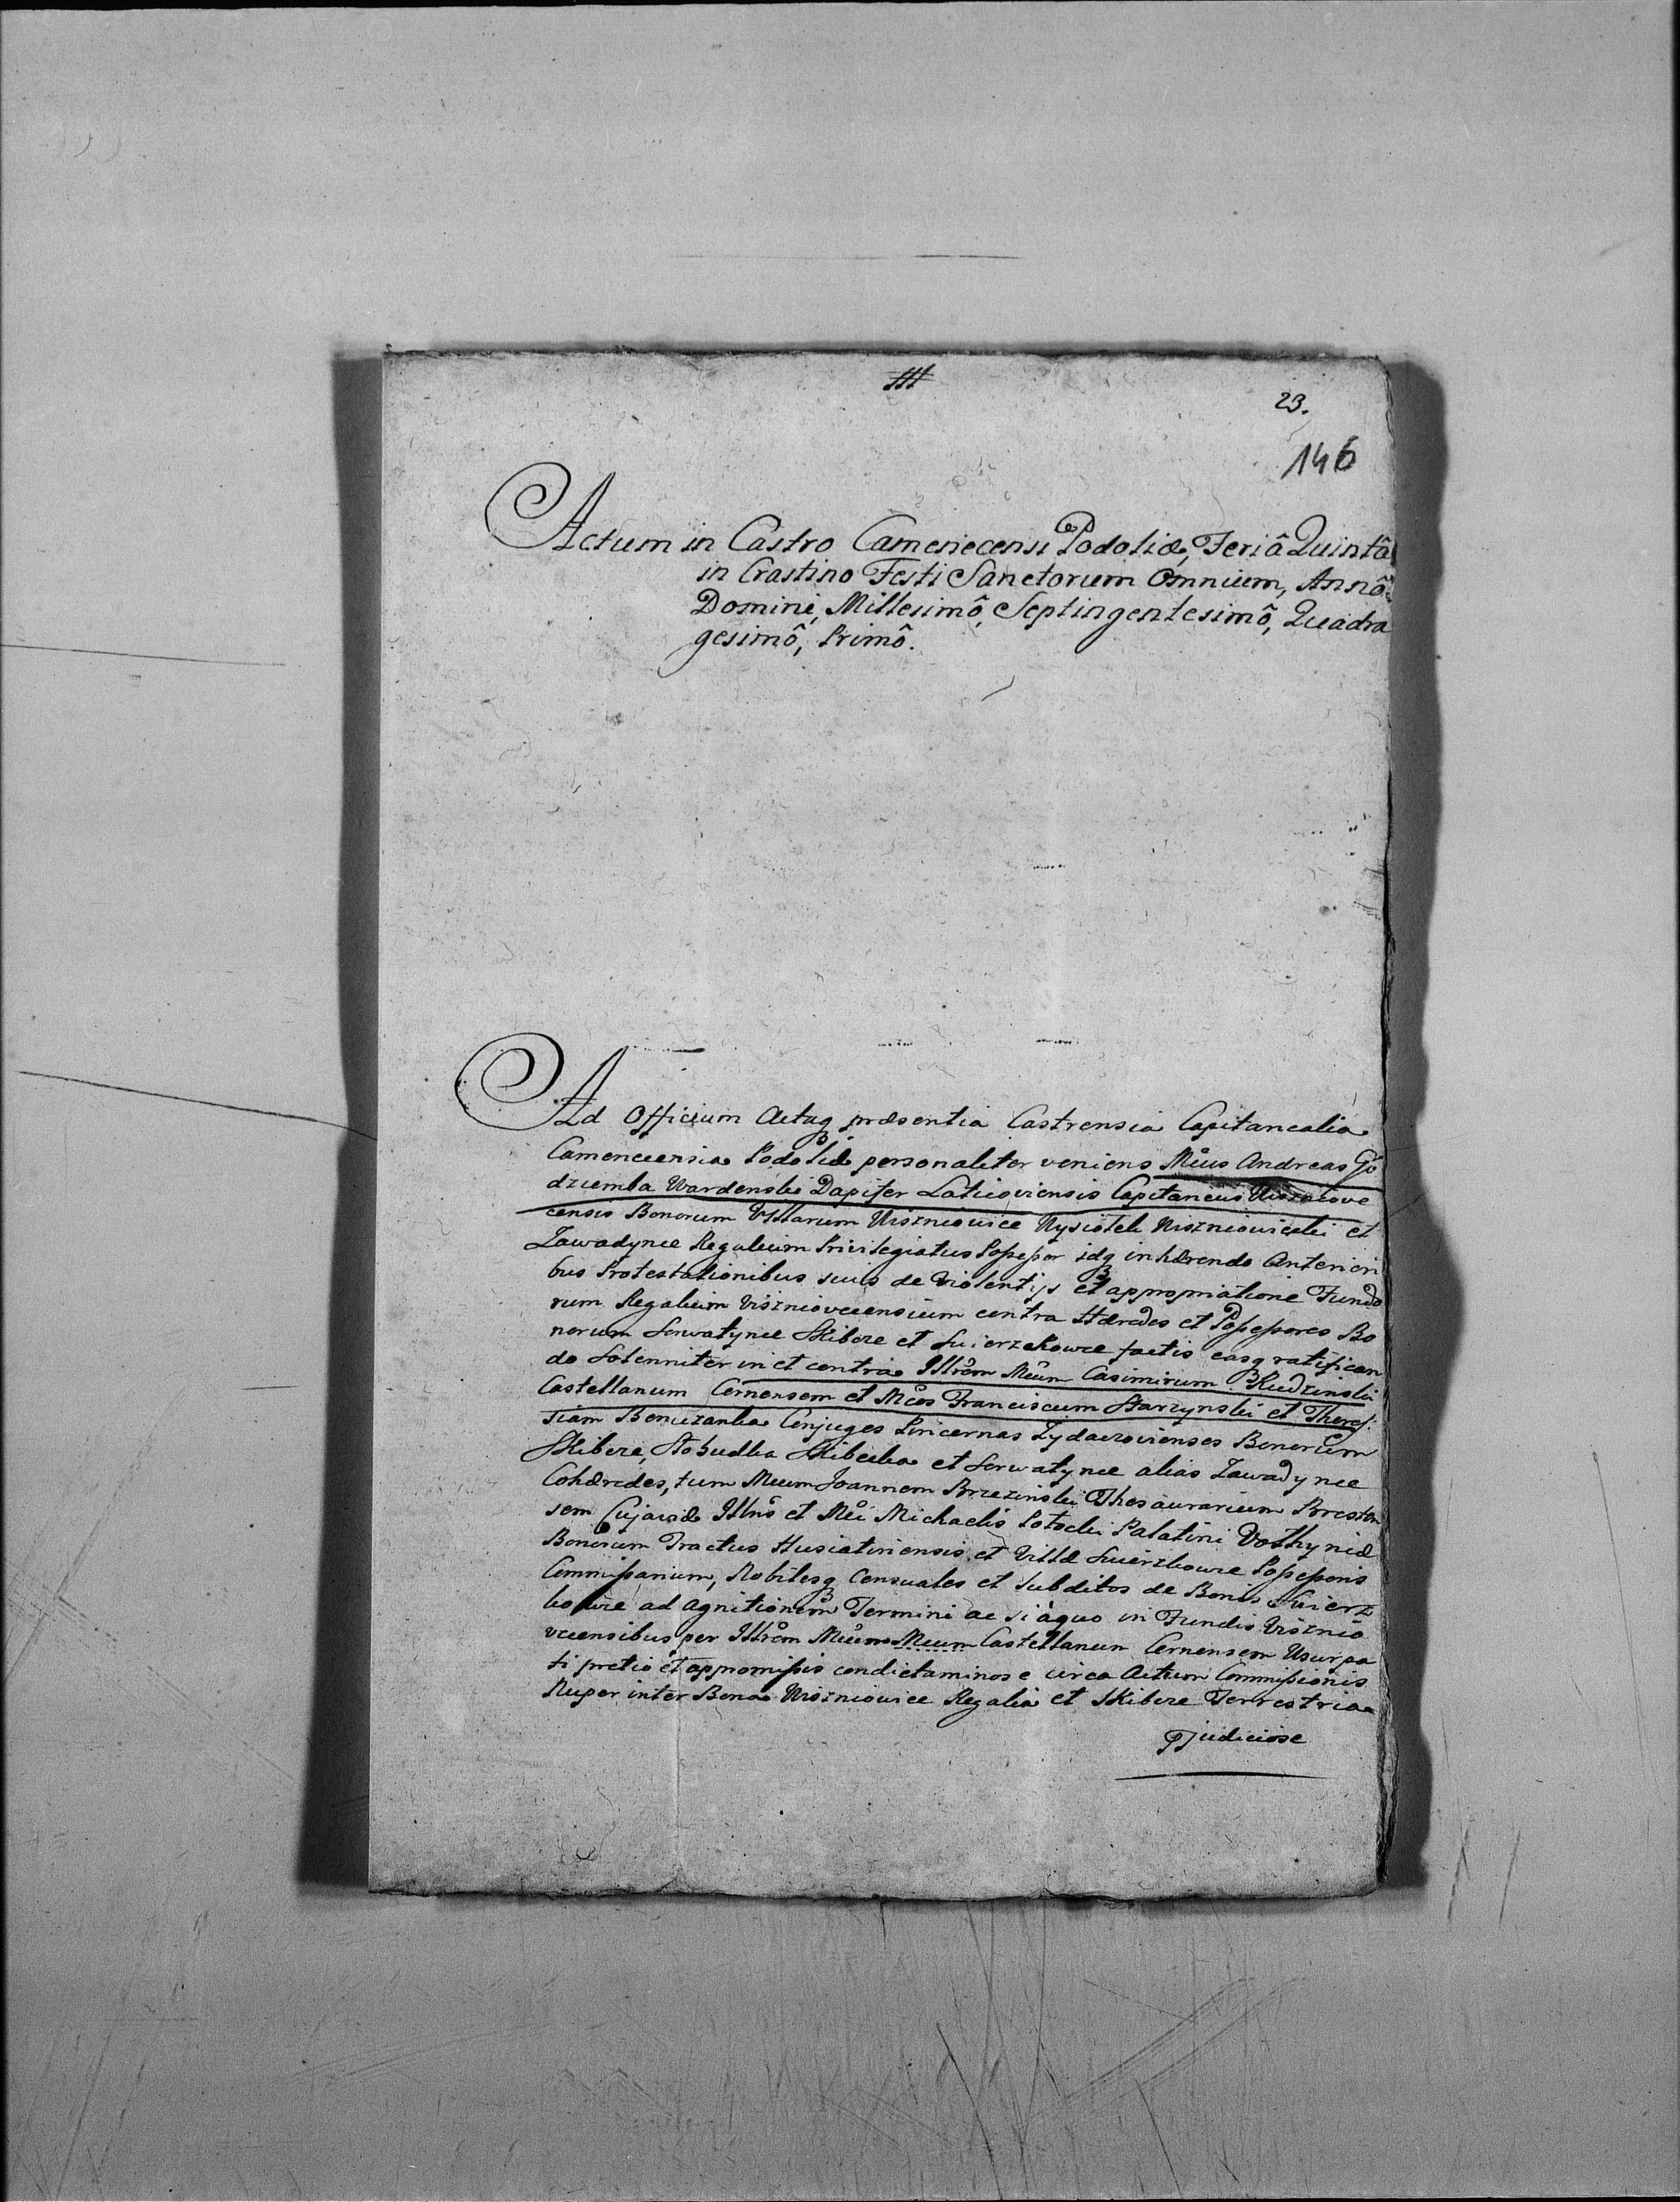 III
23.
146
Actum in Castro Camenecensi Podoliæ, Feriâ Quintâ
in Crastino Festi Sanctorum Omnium, Annô
Domini, Millesimô, Septingentesimô, Quadra
gesimô, Primô.
Ad Officium Actaq præsentia Castrensia Capitanealia
Camenecensia Podoliæ personaliter veniens Mcus Andreas Go
dziemba Wardenski Dapifer Laticoviensis Capitaneus Wiszniove
censis Bonorum Villarum Wiszniowice Wysiotek Wiszniowiecki et
Zawadynce Regalium Privilegiatus Possessor idq inhærendo Anteriori
bus Protestationibus suis de Violentijs et appropriatione Fundo
rum Regalium Wisznioveensium contra Hæredes et Possessores Bo
norum Serwatynce Skibze et Swierzkowce factis easq ratifican
do Solenniter in et contra Illrem Mcum Casimirum Rudzinski
Castellanum Cernensem et Mcos Franciscum Starzynski et There
siam Bemuzanka Conjuges Pincernas Zydaczovienses Bonorum
Skibze, Stobudka Skibecka et Serwatynce alias Zawadynce
Cohæredes, tum Mcum Joannem Brzezinski Thesaurarium Bresten
sem Cujaviæ Illris et Mci Michaelis Potocki Palatini Volhyniæ
Bonorum Tractus Husiatinensis et Villæ Swierzkowce Possessoris
Commissarium, Nobilesq Censuales et Subditos de Bonis Swierz
kowce ad agnitionem Termini ac si àquo in Fundis Visznio
vcensibus per Illrem Mcum Mcum Castellanum Cernensem Usurpa
ti pretio et appromissis condictaminose circa Actum Commissionis
Nuper inter Bona Wiszniowce Regalia et Skibze Terrestria
pjudiciose